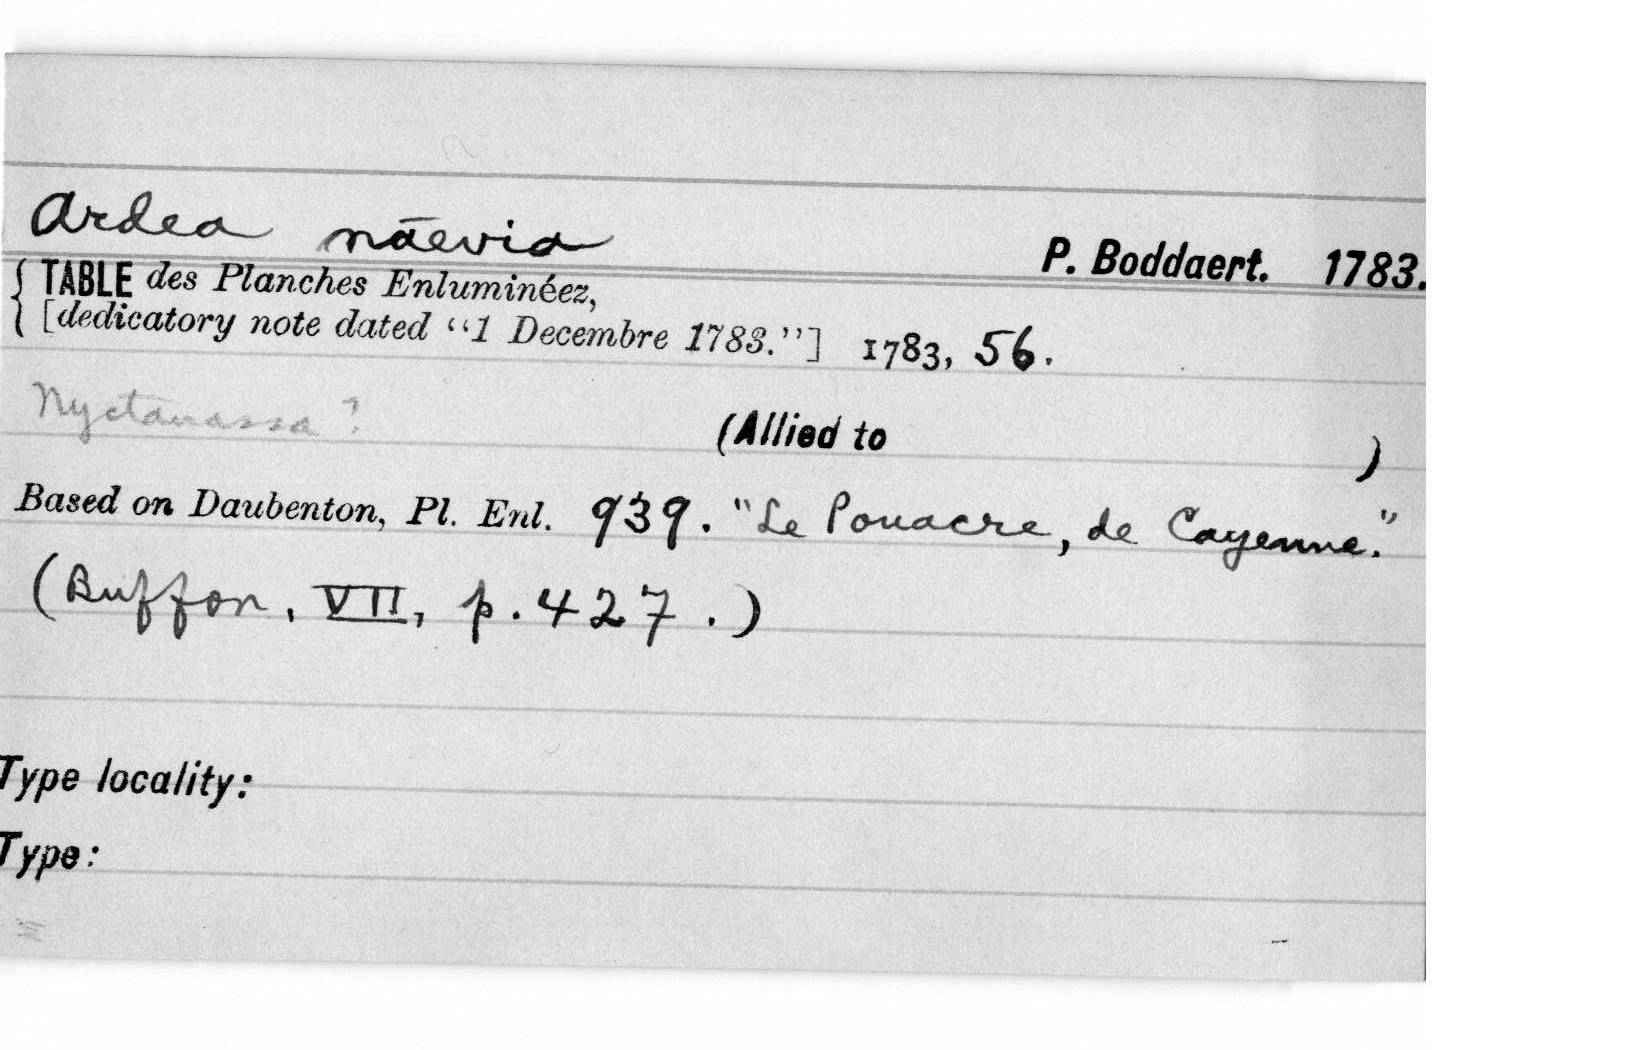 Ardea naevia
P. Boddaert. 1783.
{ TABLE des Planches Enluminéez,
[dedicatory note dated “1 Decembre 1783.”] 1783, 56.
Nyctanassa ?
(Allied to )
Based on Daubenton, Pl. Enl. 939. "Le Pouacre, de Cayenne."
(Buffon, VII, p. 427.)
Type locality:
Type: